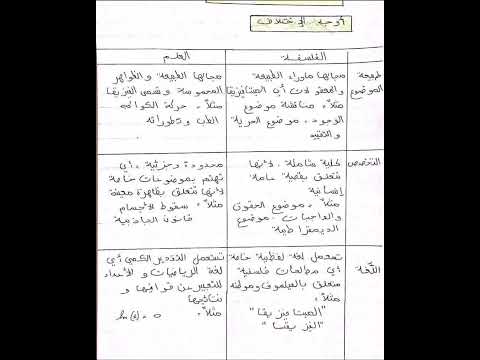 أوجه الإختلاف
الفلسفة
العلم
طبيعة
الموضوع
مجالها ماوراء الطبيعة
والمعقولات أي الميتافيزيقا
مثلا: مناقشة موضوع
الوجود، موضوع الحرية
و
مجالها الطبيعة والظواهر
المحسوسة وتسمى الفيزيقا
مثلا: حركة الكواكب
الطب وتطوراته
التخصص
كلية شاملة، لأنها
تتعلق بقضية عامة
إنسانية
مثلا: موضوع الحقوق
والواجبات، موضوع
الديمقراطية
محدودة وجزئية، أي
تهتم بموضوعات خاصة
لأنها تتعلق بظاهرة معينة
مثلا: سقوط الأجسام
قانون الجاذبية
اللغة
تستعمل لغة لفظية خاصة
أي مصطلحات فلسفية
تتعلق بالفيلسوف وموقفه
مثلا:
"الميتافيزيقا"
"الفيزيقا"
تستعمل التقدير الكمي أي
لغة الرياضيات والأعداد
للتعبير عن قوانينها و
نتائجها
مثلا: = 0